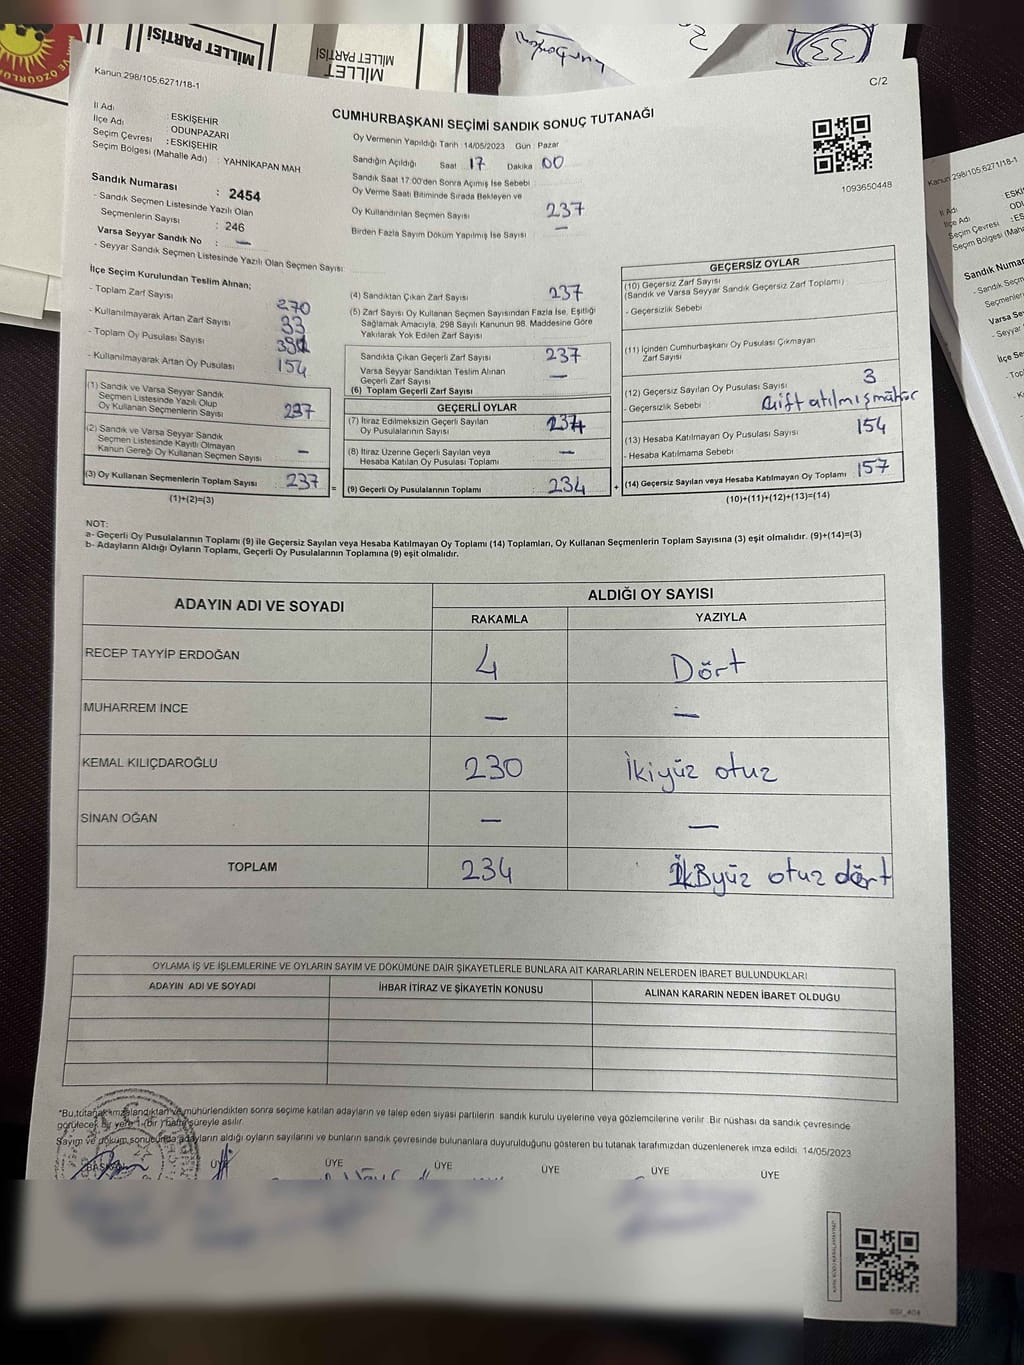 MİLLET PARTİSİ
MİLLET PARTİSİ
MİLLET
Kanun:298/105,6271/18-1
C/2
CUMHURBAŞKANI SEÇİMİ SANDIK SONUÇ TUTANAĞI
İl Adı : ESKİŞEHİR
İlçe Adı : ODUNPAZARI
Seçim Çevresi : ESKİŞEHİR
Seçim Bölgesi (Mahalle Adı) : YAHNIKAPAN MAH
Sandık Numarası : 2454
- Sandık Seçmen Listesinde Yazılı Olan
Seçmenlerin Sayısı : 246
Varsa Seyyar Sandık No : —
- Seyyar Sandık Seçmen Listesinde Yazılı Olan Seçmen Sayısı:
Oy Vermenin Yapıldığı Tarih :14/05/2023 Gün : Pazar
Sandığın Açıldığı Saat 17 Dakika 00
Sandık Saat 17:00'den Sonra Açımış İse Sebebi
Oy Verme Saati Bitiminde Sırada Bekleyen ve
Oy Kullandırılan Seçmen Sayısı 237
Birden Fazla Sayım Döküm Yapılmış İse Sayısı —
1093650448
İlçe Seçim Kurulundan Teslim Alınan;
- Toplam Zarf Sayısı 270
- Kullanılmayarak Artan Zarf Sayısı 33
- Toplam Oy Pusulası Sayısı
- Kullanılmayarak Artan Oy Pusulası 154
(1) Sandık ve Varsa Seyyar Sandık
Seçmen Listesinde Yazılı Olup
Oy Kullanan Seçmenlerin Sayısı 237
(2) Sandık ve Varsa Seyyar Sandık
Seçmen Listesinde Kayıtlı Olmayan
Kanun Gereği Oy Kullanan Seçmen Sayısı —
(3) Oy Kullanan Seçmenlerin Toplam Sayısı 237 =
(1)+(2)=(3)
(4) Sandıktan Çıkan Zarf Sayısı 237
(5) Zarf Sayısı Oy Kullanan Seçmen Sayısından Fazla İse, Eşitliği
Sağlamak Amacıyla, 298 Sayılı Kanunun 98. Maddesine Göre
Yakılarak Yok Edilen Zarf Sayısı
Sandıkta Çıkan Geçerli Zarf Sayısı 237
Varsa Seyyar Sandıktan Teslim Alınan
Geçerli Zarf Sayısı —
(6) Toplam Geçerli Zarf Sayısı
GEÇERLİ OYLAR
(7) İtiraz Edilmeksizin Geçerli Sayılan
Oy Pusulalarının Sayısı 234
(8) İtiraz Üzerine Geçerli Sayılan veya
Hesaba Katılan Oy Pusulası Toplamı —
(9) Geçerli Oy Pusulalarının Toplamı 234 +
GEÇERSİZ OYLAR
(10) Geçersiz Zarf Sayısı
(Sandık ve Varsa Seyyar Sandık Geçersiz Zarf Toplamı)
- Geçersizlik Sebebi
(11) İçinden Cumhurbaşkanı Oy Pusulası Çıkmayan
Zarf Sayısı
(12) Geçersiz Sayılan Oy Pusulası Sayısı 3
- Geçersizlik Sebebi Çift atılmış mühür
(13) Hesaba Katılmayan Oy Pusulası Sayısı 154
- Hesaba Katılmama Sebebi
(14) Geçersiz Sayılan veya Hesaba Katılmayan Oy Toplamı 157
(10)+(11)+(12)+(13)=(14)
NOT:
a- Geçerli Oy Pusulalarının Toplamı (9) ile Geçersiz Sayılan veya Hesaba Katılmayan Oy Toplamı (14) Toplamları, Oy Kullanan Seçmenlerin Toplam Sayısına (3) eşit olmalıdır. (9)+(14)=(3)
b- Adayların Aldığı Oyların Toplamı, Geçerli Oy Pusulalarının Toplamına (9) eşit olmalıdır.
ADAYIN ADI VE SOYADI ALDIĞI OY SAYISI
RAKAMLA YAZIYLA
RECEP TAYYİP ERDOĞAN 4 Dört
MUHARREM İNCE — —
KEMAL KILIÇDAROĞLU 230 İkiyüz otuz
SİNAN OĞAN — —
TOPLAM 234 İkiyüz otuz dört
OYLAMA İŞ VE İŞLEMLERİNE VE OYLARIN SAYIM VE DÖKÜMÜNE DAİR ŞİKAYETLERLE BUNLARA AİT KARARLARIN NELERDEN İBARET BULUNDUKLARI
ADAYIN ADI VE SOYADI İHBAR İTİRAZ VE ŞİKAYETİN KONUSU ALINAN KARARIN NEDEN İBARET OLDUĞU
*Bu tutanak imzalandıktan ve mühürlendikten sonra seçime katılan adayların ve talep eden siyasi partilerin sandık kurulu üyelerine veya gözlemcilerine verilir. Bir nüshası da sandık çevresinde
görülecek bir yere 1 (bir ) hafta süreyle asılır.
Sayım ve döküm sonucunda adayların aldığı oyların sayılarını ve bunların sandık çevresinde bulunanlara duyurulduğunu gösteren bu tutanak tarafımızdan düzenlenerek imza edildi. 14/05/2023
BAŞKAN ÜYE ÜYE ÜYE ÜYE ÜYE ÜYE
Kanun:298/105,6271/18-1